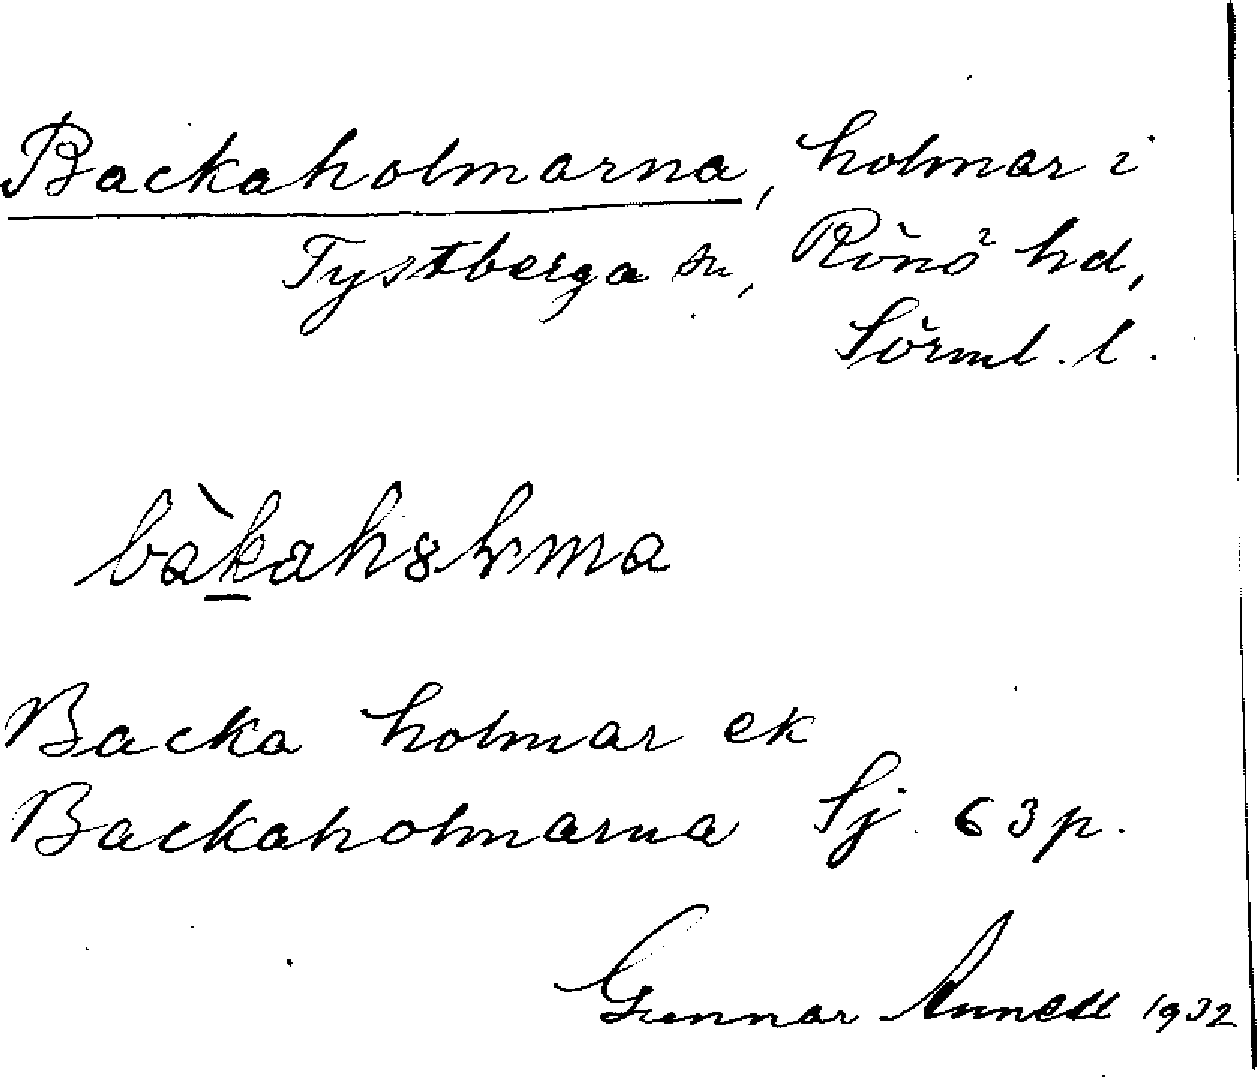 Backaholmarna, holmar i
Tystberga sn, Rönö hd,
Sörml. l.
bàkah8lma
Backa holmar ek
Backaholmarna Sj. 63 p.
Gunnar Annell 1932